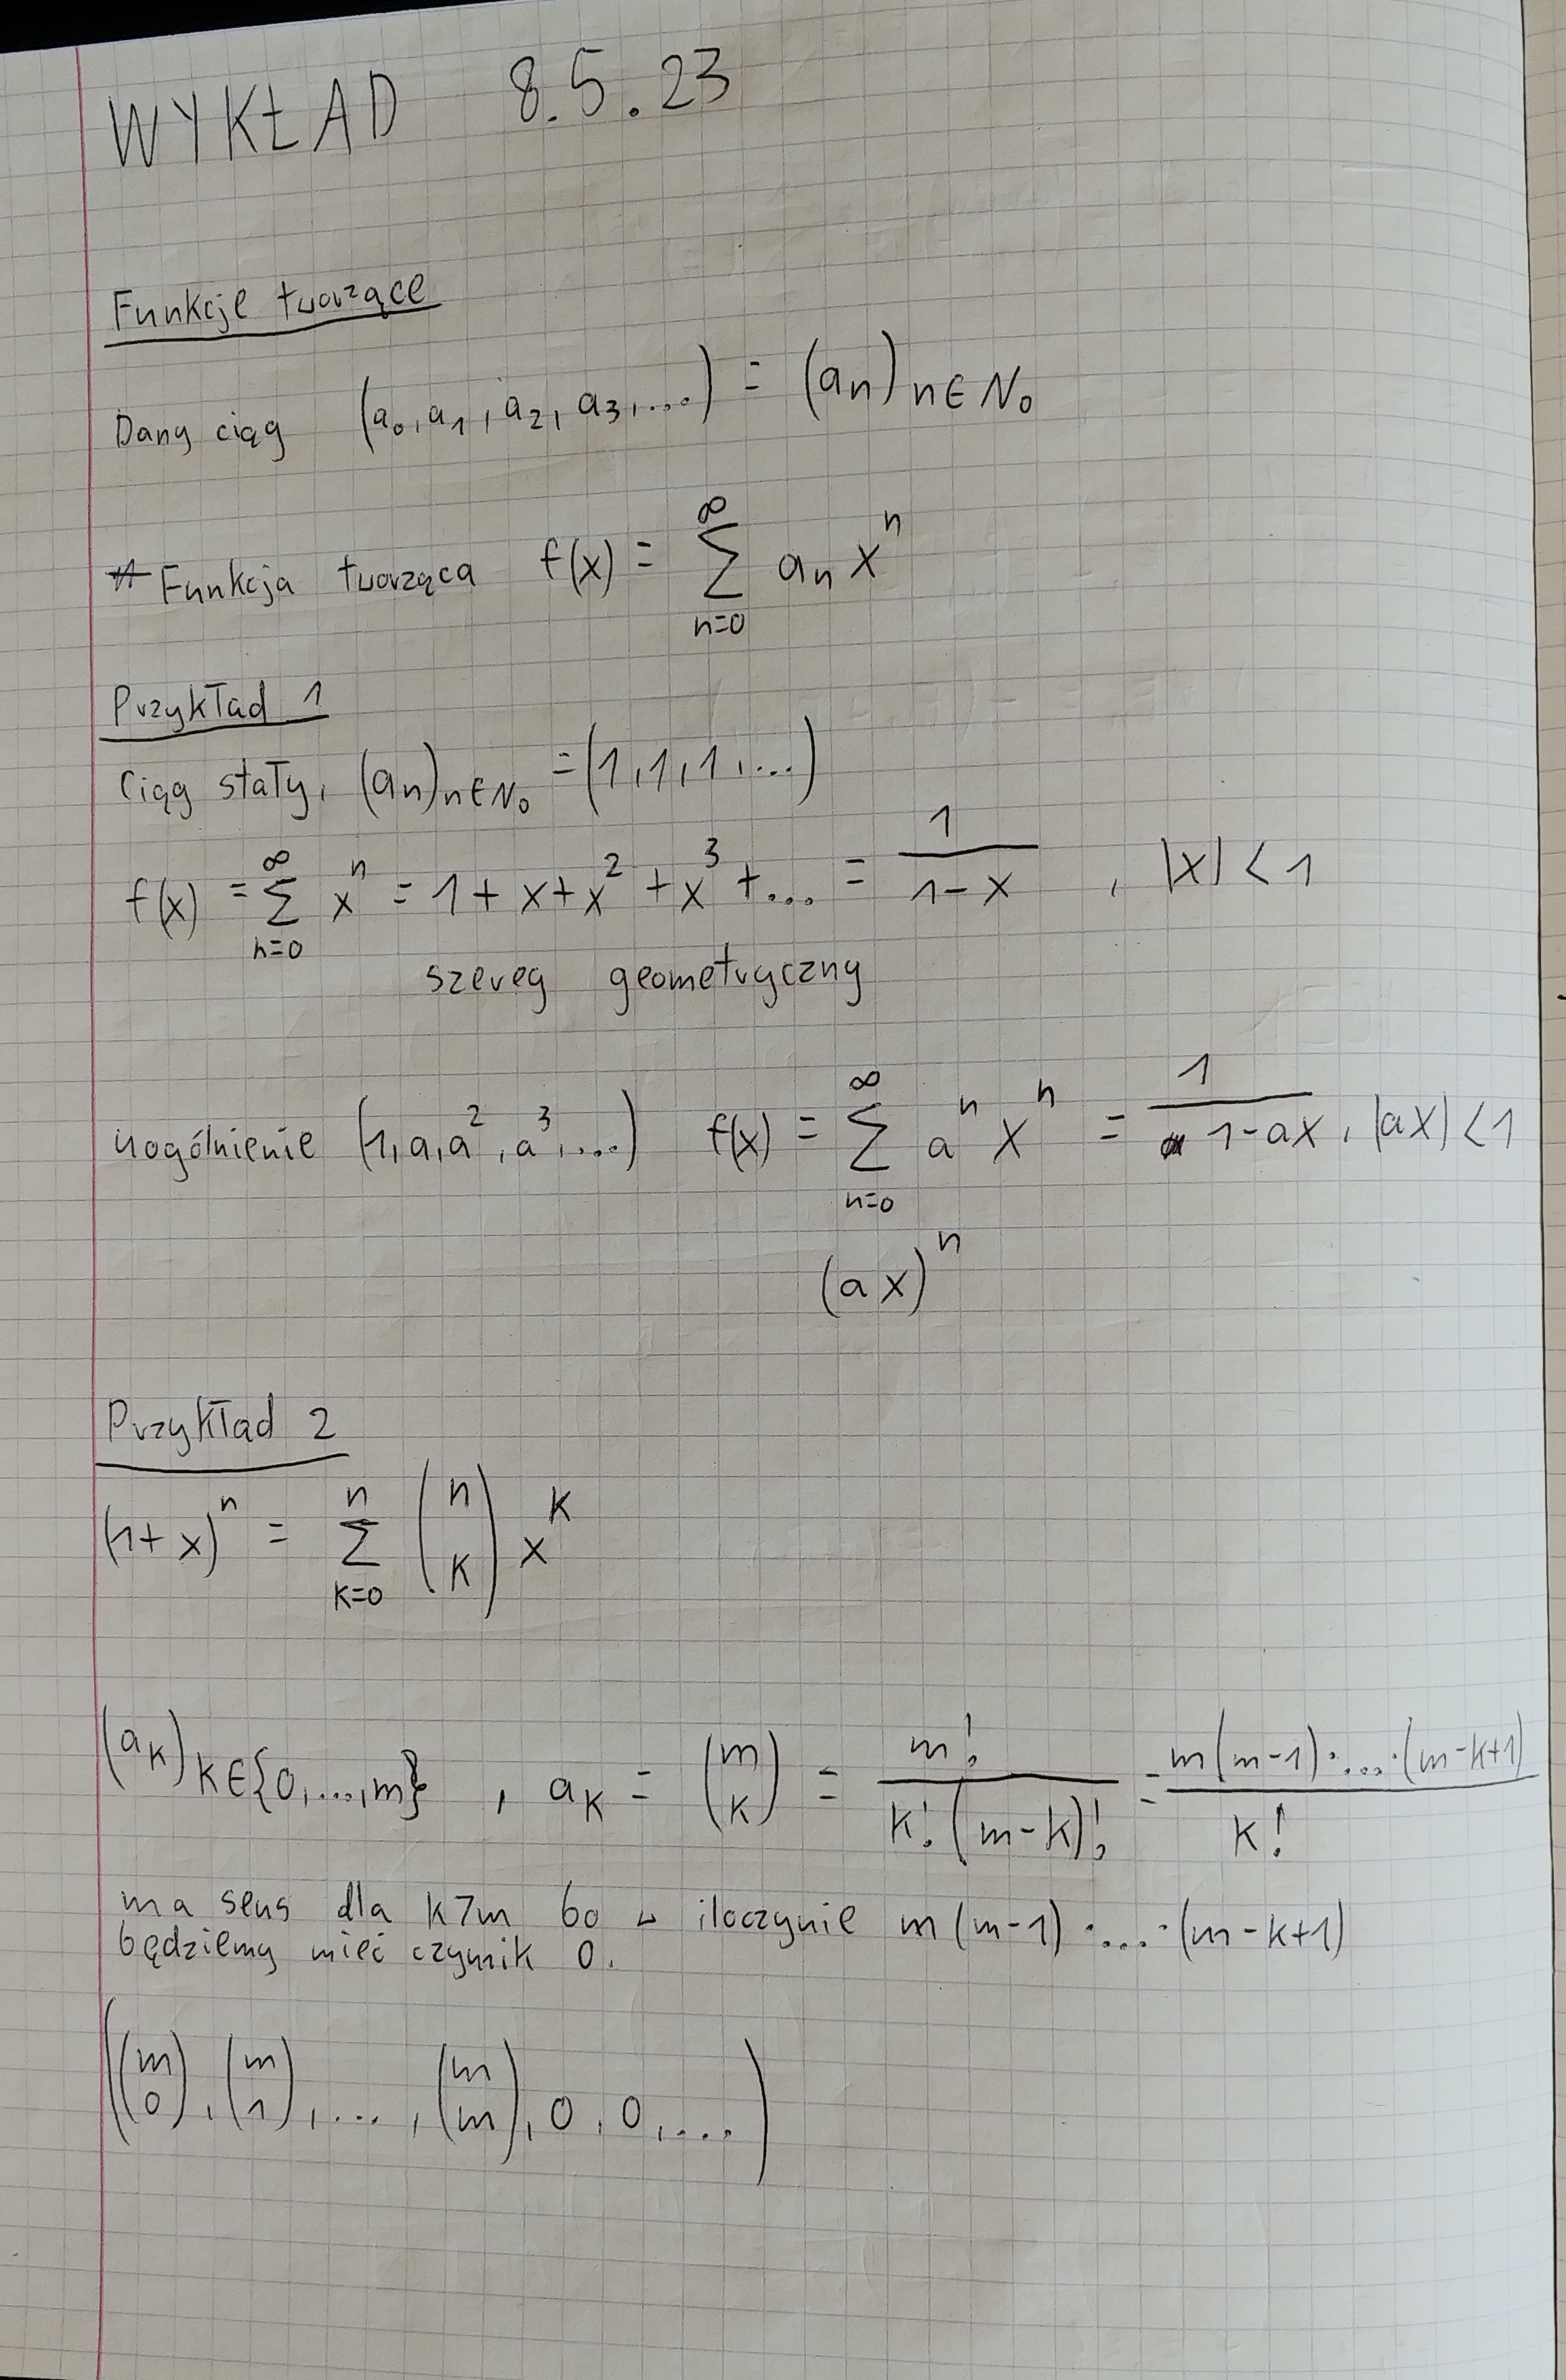 WYKŁAD 8.5.23
Funkcje tworzące
Dany ciąg (a₀, a₁, a₂, a₃, ...) = (aₙ)ₙ∈N₀
Funkcja tworząca f(x) = ∑_{n=0}^{∞} aₙ xⁿ
Przykład 1
Ciąg stały, (aₙ)ₙ∈N₀ = (1,1,1,...)
f(x) = ∑_{n=0}^{∞} xⁿ = 1 + x + x² + x³ + ... = \frac{1}{1-x} , |x| < 1
szereg geometryczny
uogólnienie (1, a, a², a³, ...) f(x) = ∑_{n=0}^{∞} aⁿ xⁿ = \frac{1}{1-ax}, |ax| < 1
(ax)ⁿ
Przykład 2
(1+x)ⁿ = ∑_{k=0}^{n} \binom{n}{k} x^k
(a_k)_{k∈{0,...,m}} , a_k = \binom{m}{k} = \frac{m!}{k!(m-k)!} = \frac{m(m-1)·...·(m-k+1)}{k!}
ma sens dla k>m bo w iloczynie m(m-1)·...·(m-k+1)
będziemy mieć czynnik 0.
(\binom{m}{0}, \binom{m}{1}, ..., \binom{m}{m}, 0, 0, ...)